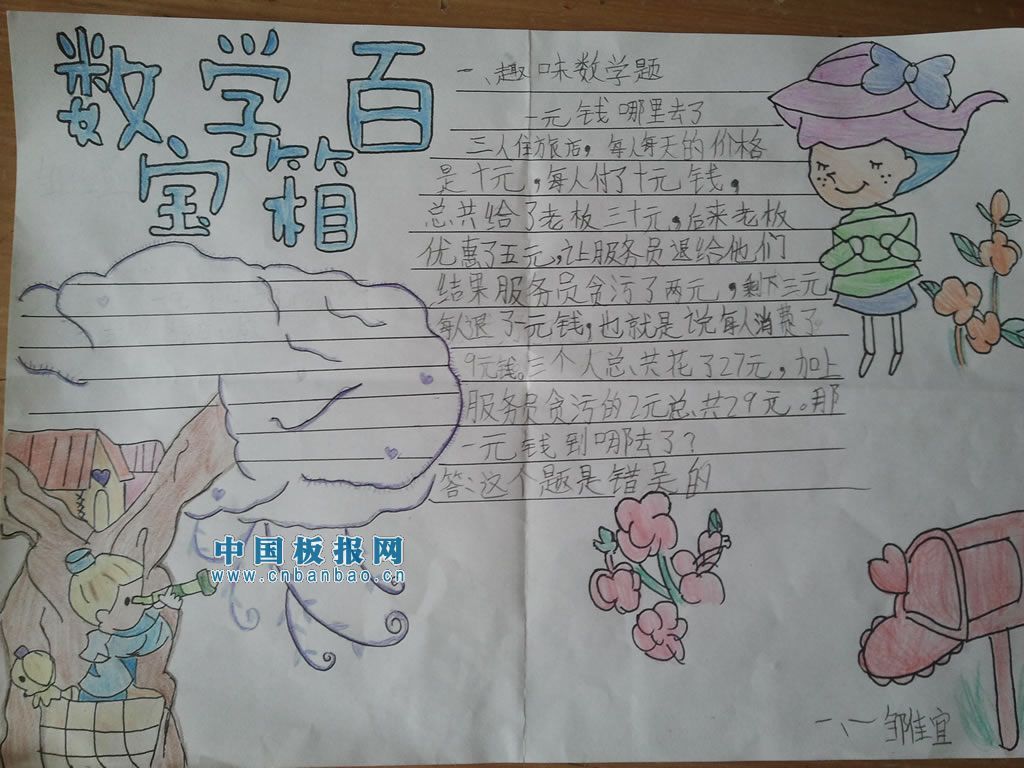 数学百
宝箱
一、趣味数学题
一元钱哪里去了
三人住旅店，每人每天的价格
是十元，每人付了十元钱，
总共给了老板三十元，后来老板
优惠了五元，让服务员退给他们
结果服务员贪污了两元，剩下三元
每人退了一元钱，也就是说每人消费了
9元钱。三个人总共花了27元，加上
服务员贪污的2元总共29元。那
一元钱到哪去了？
答：这个题是错误的
中国板报网
www.cnbanbao.cn
一、一 邹佳宜